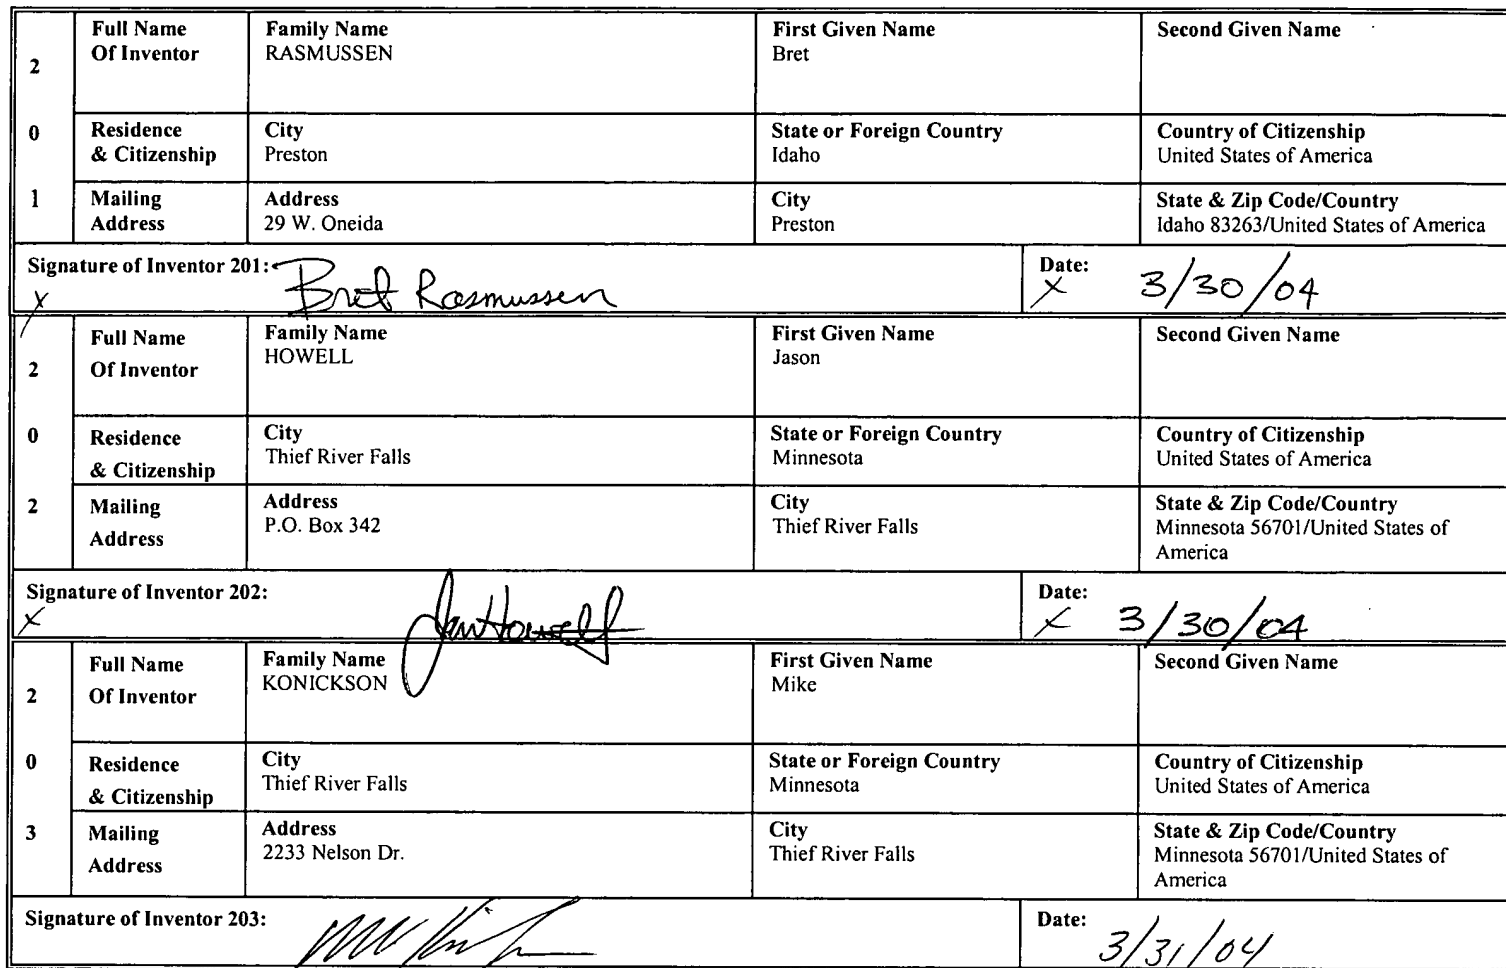 Full Name Of Inventor
Family Name RASMUSSEN
First Given Name Bret
Second Given Name
2 0 1
Residence & Citizenship
City Preston
State or Foreign Country Idaho
Country of Citizenship United States of America
Mailing Address
Address 29 W. Oneida
City Preston
State & Zip Code/Country Idaho 83263/United States of America
Signature of Inventor 201: X Bret Rasmussen
Date: X 3/30/04
Full Name Of Inventor
Family Name HOWELL
First Given Name Jason
Second Given Name
2 0 2
Residence & Citizenship
City Thief River Falls
State or Foreign Country Minnesota
Country of Citizenship United States of America
Mailing Address
Address P.O. Box 342
City Thief River Falls
State & Zip Code/Country Minnesota 56701/United States of America
Signature of Inventor 202: X
Date: X 3/30/04
Full Name Of Inventor
Family Name KONICKSON
First Given Name Mike
Second Given Name
2 0 3
Residence & Citizenship
City Thief River Falls
State or Foreign Country Minnesota
Country of Citizenship United States of America
Mailing Address
Address 2233 Nelson Dr.
City Thief River Falls
State & Zip Code/Country Minnesota 56701/United States of America
Signature of Inventor 203:
Date: 3/31/04